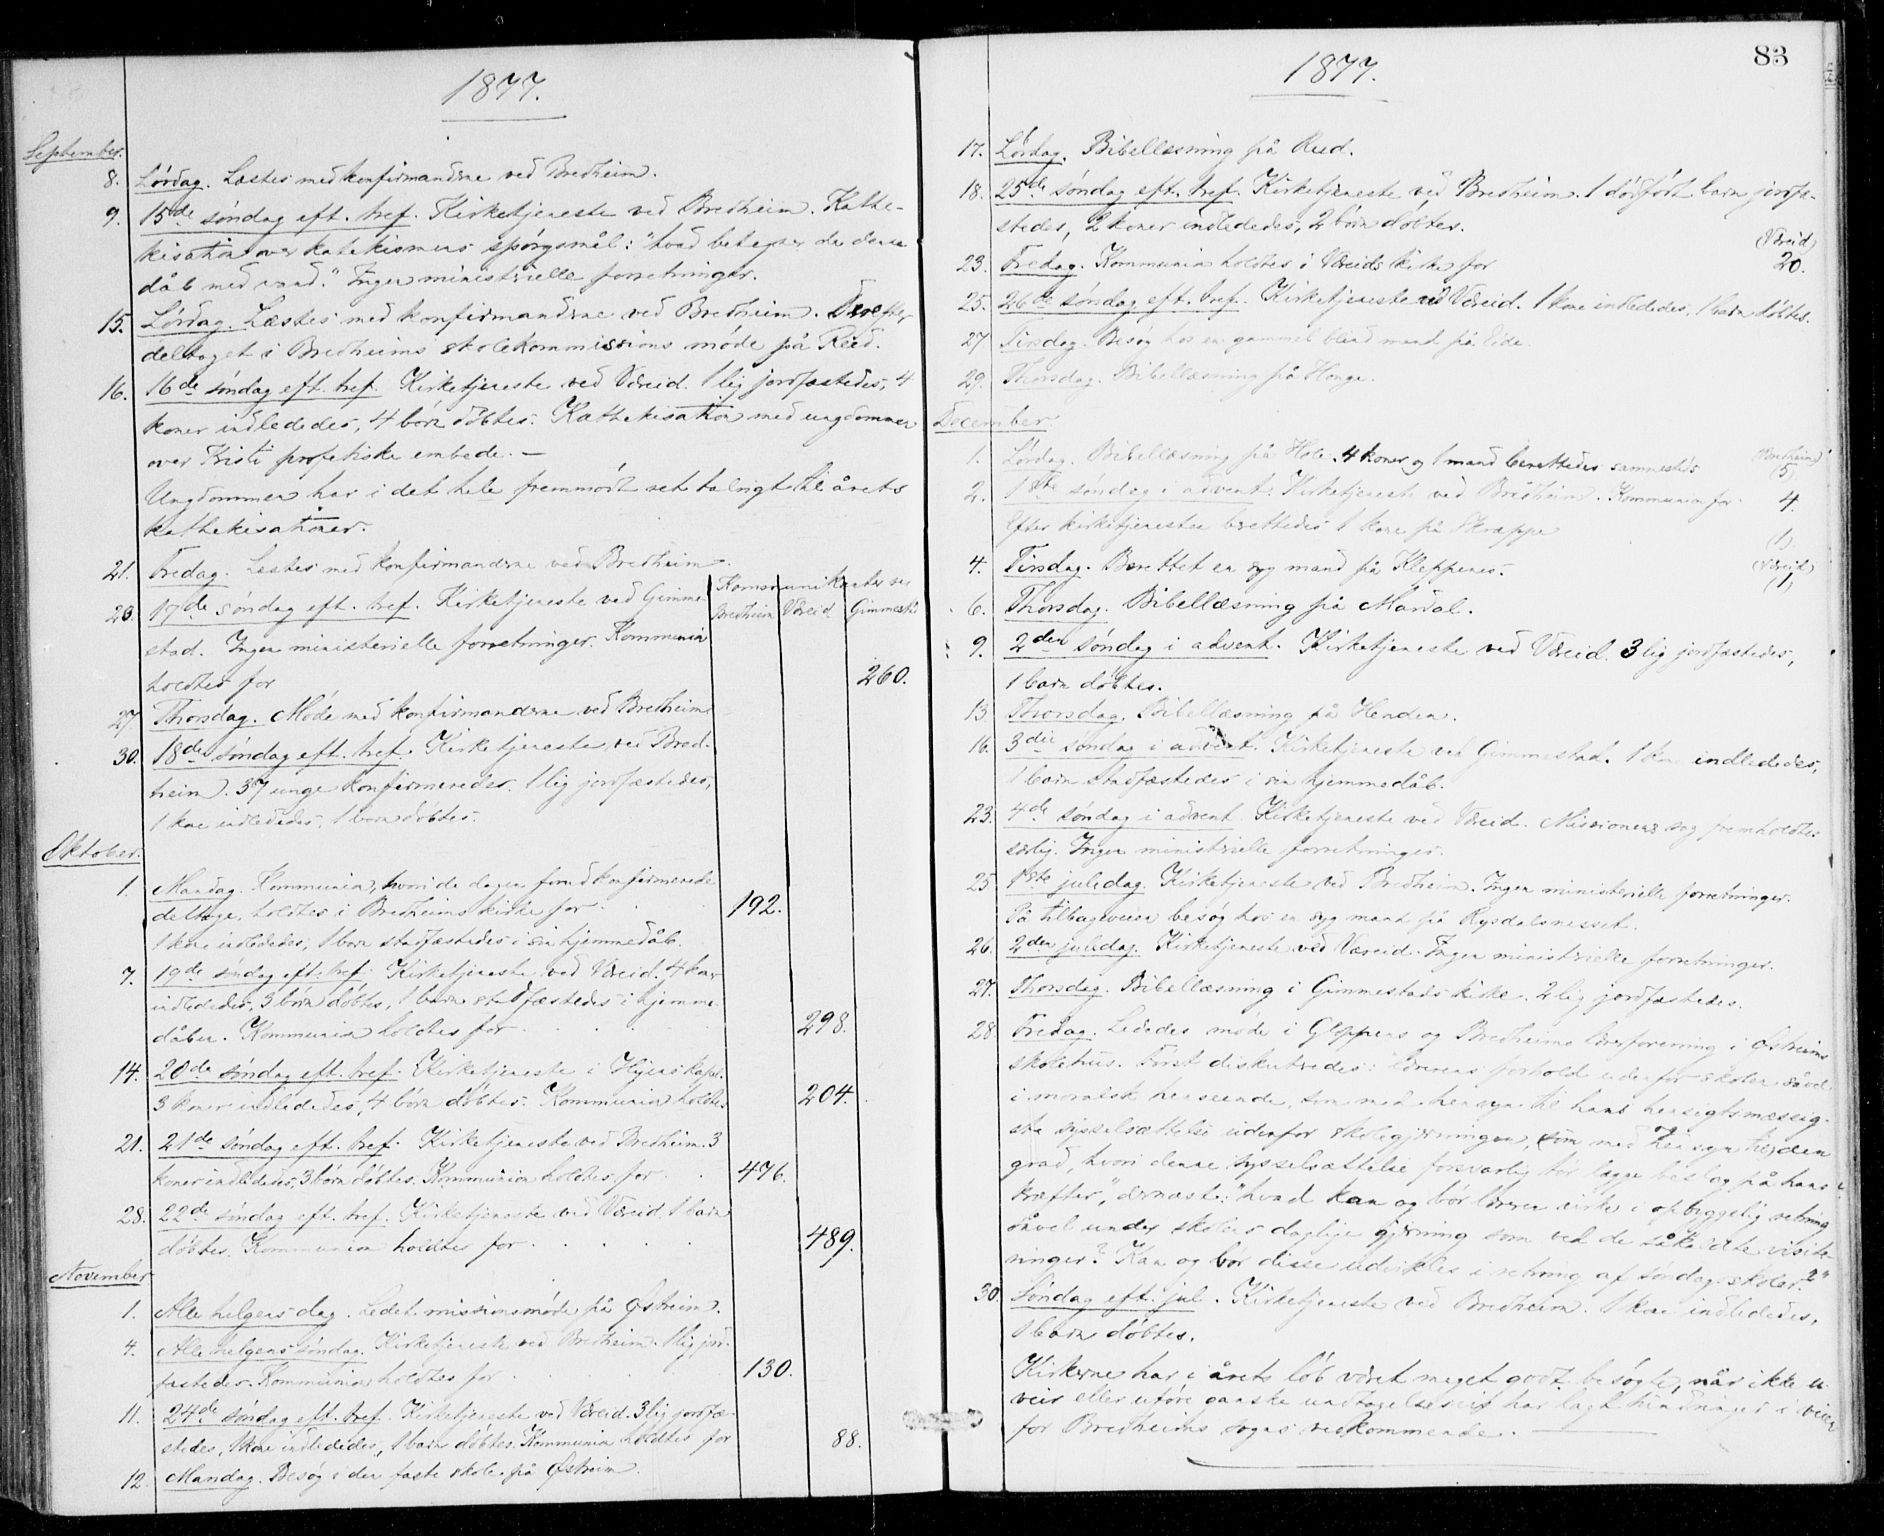 1877.
September.
8. Lørdag. Læstes med konfirmanderne ved Bredheim.
9. 15de søndag eft. tref. Kirketjeneste ved Bredheim. Kathe-
kisation over katekismens spørgsmål: "hvad betegner da denne
dåb med vand." Ingen ministerielle forretninger.
15. Lørdag. Læstes med konfirmanderne ved Bredheim. Derefter
deltaget i Bredheims skolekommissions møde på Reed.
16. 16de søndag eft. tref. Kirketjeneste ved Vereid. 1 lig jordfæstedes, 4
koner indlededes, 4 børn døbtes. Kathekisation med ungdommen
over Kristi profetiske embede. —
Ungdommen har i det hele fremmødt ret talrigt til årets
kathekisationer.
21. Fredag. Læstes med konfirmanderne ved Bredheim.
Kommunikanter ved
Bredheim Vereid Gimmestad
23. 17de søndag eft. tref. Kirketjeneste ved Gimme-
stad. Ingen ministerielle forretninger. Kommunion
holdtes for 260.
27. Thorsdag. Møde med konfirmanderne ved Bredheim.
30. 18de søndag eft. tref. Kirketjeneste ved Bred-
heim. 37 unge konfirmeredes. 1 lig jordfæstedes,
1 kone indlededes, 1 barn døbtes.
Oktober.
1. Mandag. Kommunion, hvori de dagen forud konfirmerede
deltoge, holdtes i Bredheims kirke for 192.
1 kone indlededes, 1 barn stadfæstedes i sin hjemmedåb.
7. 19de søndag eft. tref. Kirketjeneste ved Vereid. 4 koner
indlededes, 3 børn døbtes, 1 barn stadfæstedes i hjemme-
dåben. Kommunion holdtes for 298.
14. 20de søndag eft. tref. Kirketjeneste i Hyens kapel.
3 koner indlededes, 4 børn døbtes. Kommunion holdtes 204.
21. 21de søndag eft. tref. Kirketjeneste ved Bredheim. 3
koner indlededes, 3 børn døbtes. Kommunion holdtes for 476.
28. 22de søndag eft. tref. Kirketjeneste ved Vereid. 1 barn
døbtes. Kommunion holdtes for 489.
November
1. Alle helgens dag. Ledet missionsmøde på Østreim.
4. Alle helgens søndag. Kirketjeneste ved Bredheim. 1 lig jord-
fæstedes. Kommunion holdtes for 130.
11. 24de søndag eft. tref. Kirketjeneste ved Vereid. 3 lig jordfæ-
stedes, 1 kone indlededes, 1 barn døbtes. Kommunion holdtes for 88.
12. Mandag. Besøg i den faste skole på Østreim.
1877.
83
17. Lørdag. Bibellæsning på Reed.
18. 25de søndag eft. tref. Kirketjeneste ved Bredheim. 1 dødfødt barn jordfæ-
stedes, 2 koner indlededes, 2 børn døbtes.
(Vereid)
23. Fredag. Kommunion holdtes i Vereids kirke for 20.
25. 26de søndag eft. tref. Kirketjeneste ved Vereid. 1 kone indlededes, 1 barn døbtes.
27 Tirsdag. Besøg hos en gammel blind mand på Eide.
29. Thorsdag. Bibellæsning på Honge.
December.
1. Lørdag. Bibellæsning på Hole. 4 koner og 1 mand berettedes sammesteds (Bredheim) (5)
2. 1ste søndag i advent. Kirketjeneste ved Bredheim. Kommunion for 4.
Efter kirketjenesten berettedes 1 kone på Skrappe (1).
4. Tirsdag. Berettet en syg mand på Kleppenes. (Vereid) (1)
6. Thorsdag. Bibellæsning på Mardal.
9. 2den søndag i advent. Kirketjeneste ved Vereid. 3 lig jordfæstedes,
1 barn døbtes.
13 Thorsdag. Bibellæsning på Henden.
16. 3die søndag i advent. Kirketjeneste ved Gimmestad. 1 kone indlededes,
1 barn stadfæstedes i sin hjemmedåb.
23. 4de søndag i advent. Kirketjeneste ved Vereid. Missionens sag fremholdtes
særlig. Ingen ministerielle forretninger.
25 1ste juledag. Kirketjeneste ved Bredheim. Ingen ministerielle forretninger.
På tilbageveien besøg hos en syg mand på Rysdalsnesset.
26. 2den juledag. Kirketjeneste ved Vereid. Ingen ministerielle forretninger.
27. Thorsdag. Bibellæsning i Gimmestads kirke. 2 lig jordfæstedes.
28 Fredag. Lededes møde i Gloppens og Bredheims lærerforening i Østreims
skolehus. Først diskuteredes: "lærerens forhold udenfor skolen såvel
i moralsk henseende, som med hensyn til hans hensigtsmæssig-
ste sysselsættelse udenfor skolegjerningen, som med hensyn til den
grad, hvori denne sysselsættelse forsvarlig bør lægge beslag på hans
kræfter," dernæst: "hvad kan og bør læreren virke i opbyggelig retning
såvel under skolens daglige gjerning som ved de såkaldte visite-
ringer? Kan og bør disse udvikles i retning af søndagsskoler?"
30. Søndag eft. jul. Kirketjeneste ved Bredheim. 1 kone indlededes,
1 barn døbtes.
Kirkerne har i årets løb været meget godt besøgte, når ikke u-
veir eller uføre ganske undtagelsesvis har lagt hindringer i veien
for Bredheims sogns vedkommende. —